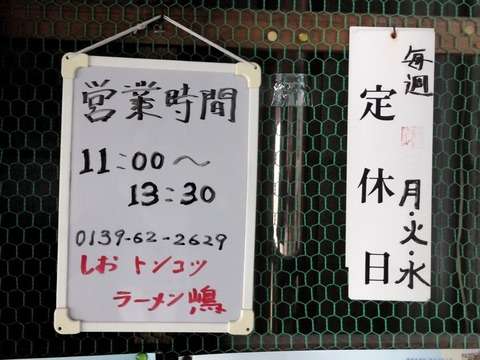 営業時間
11:00〜
13:30
0139-62-2629
しお トンコツ
ラーメン嶋
毎週
定休日
月・火・水